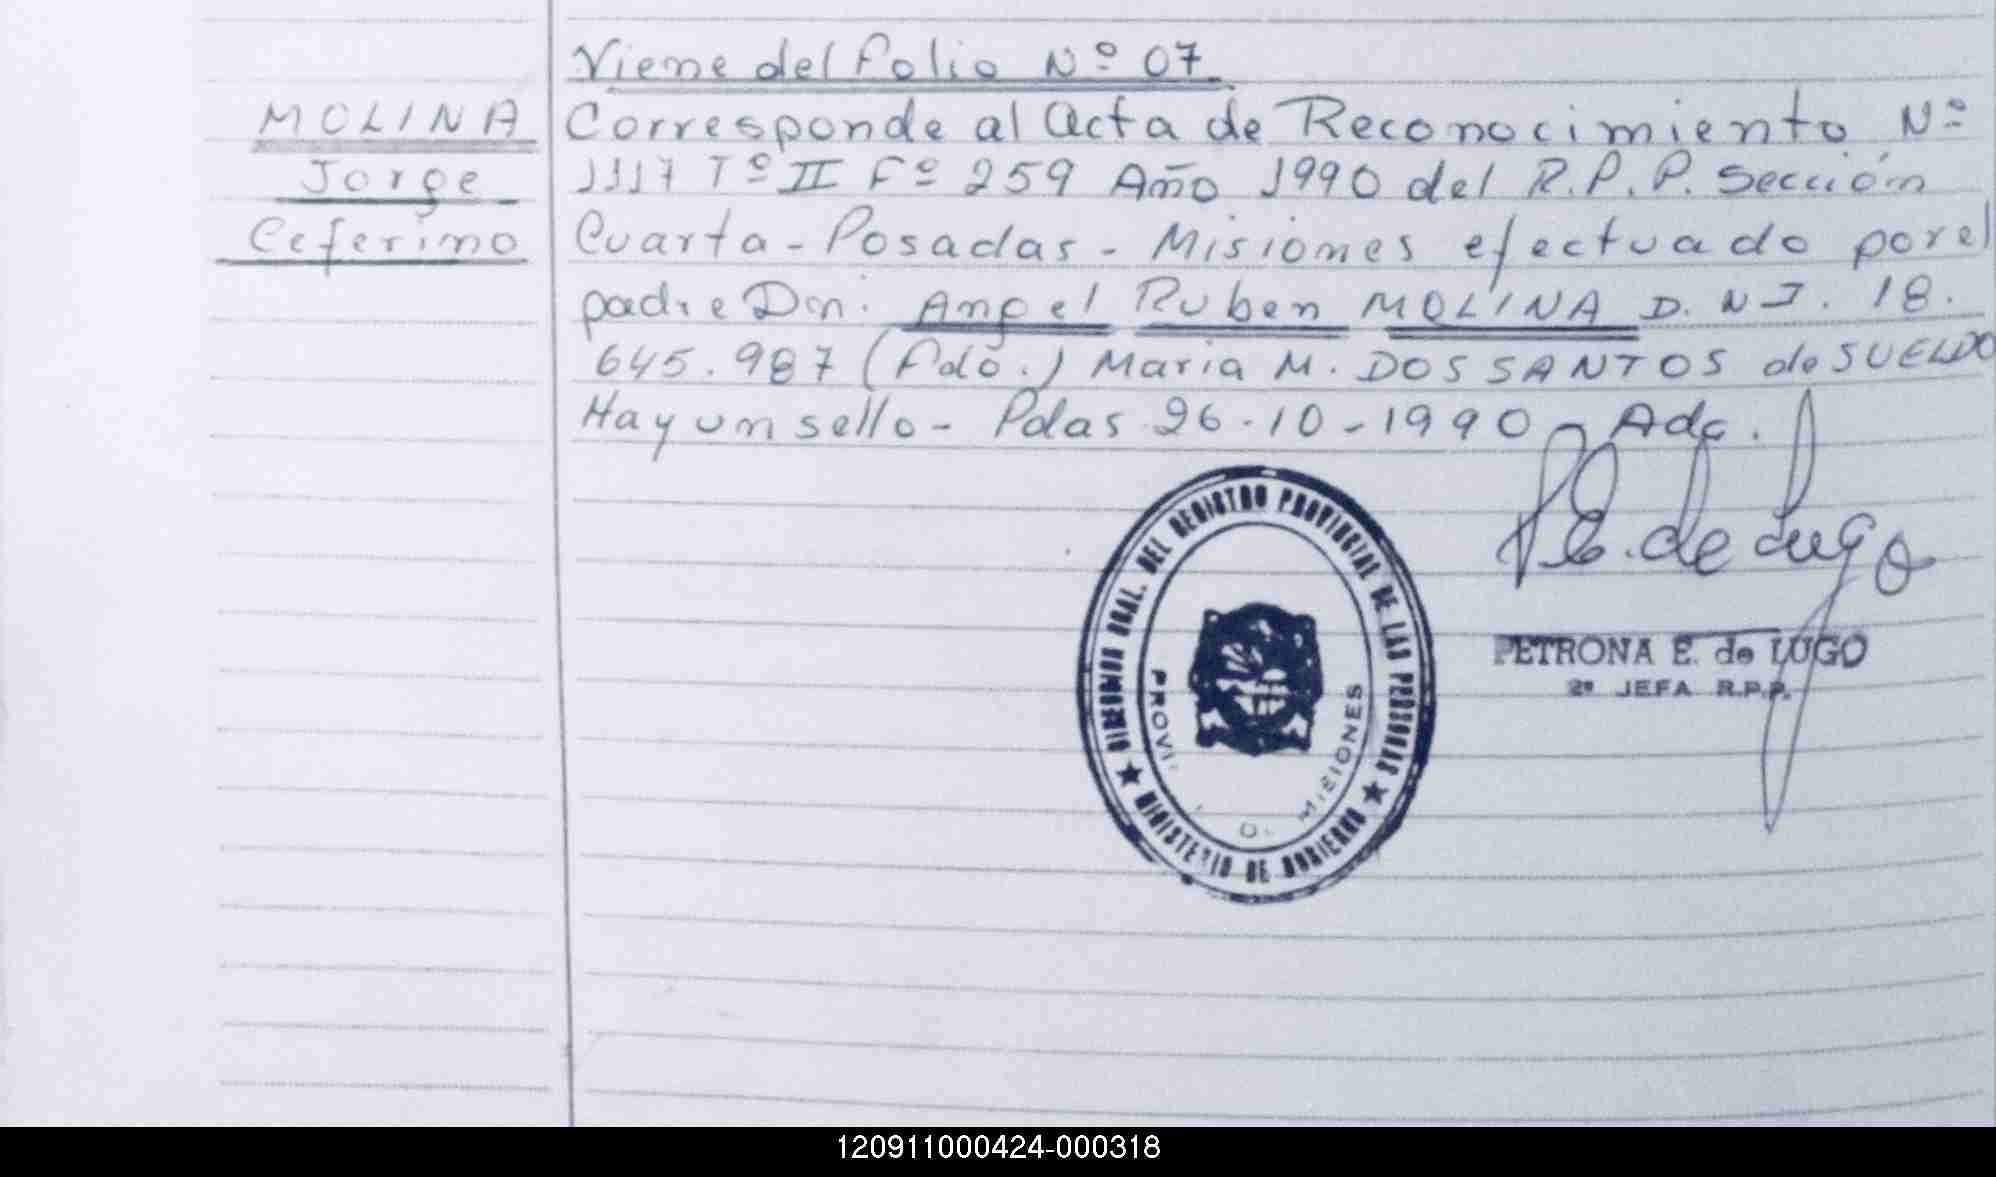 Viene del folio Nº 07
MOLINA
Jorge
Ceferino
Corresponde al Acta de Reconocimiento Nº
1117 Tº II Fº 259 Año 1990 del R.P.P. Sección
Cuarta - Posadas - Misiones efectuado por el
padre Dn. Angel Ruben MOLINA D.N.I. 18.
645.987 (Fdo.) Maria M. DOS SANTOS de SUELDO
Hay un sello - Pdas 26-10-1990 - Adc.
P. E. de Lugo
PETRONA E. de LUGO
2º JEFA R.P.P.
DIRECCION GRAL. DEL REGISTRO PROVINCIAL DE LAS PERSONAS
MINISTERIO DE GOBIERNO
MISIONES
120911000424-000318